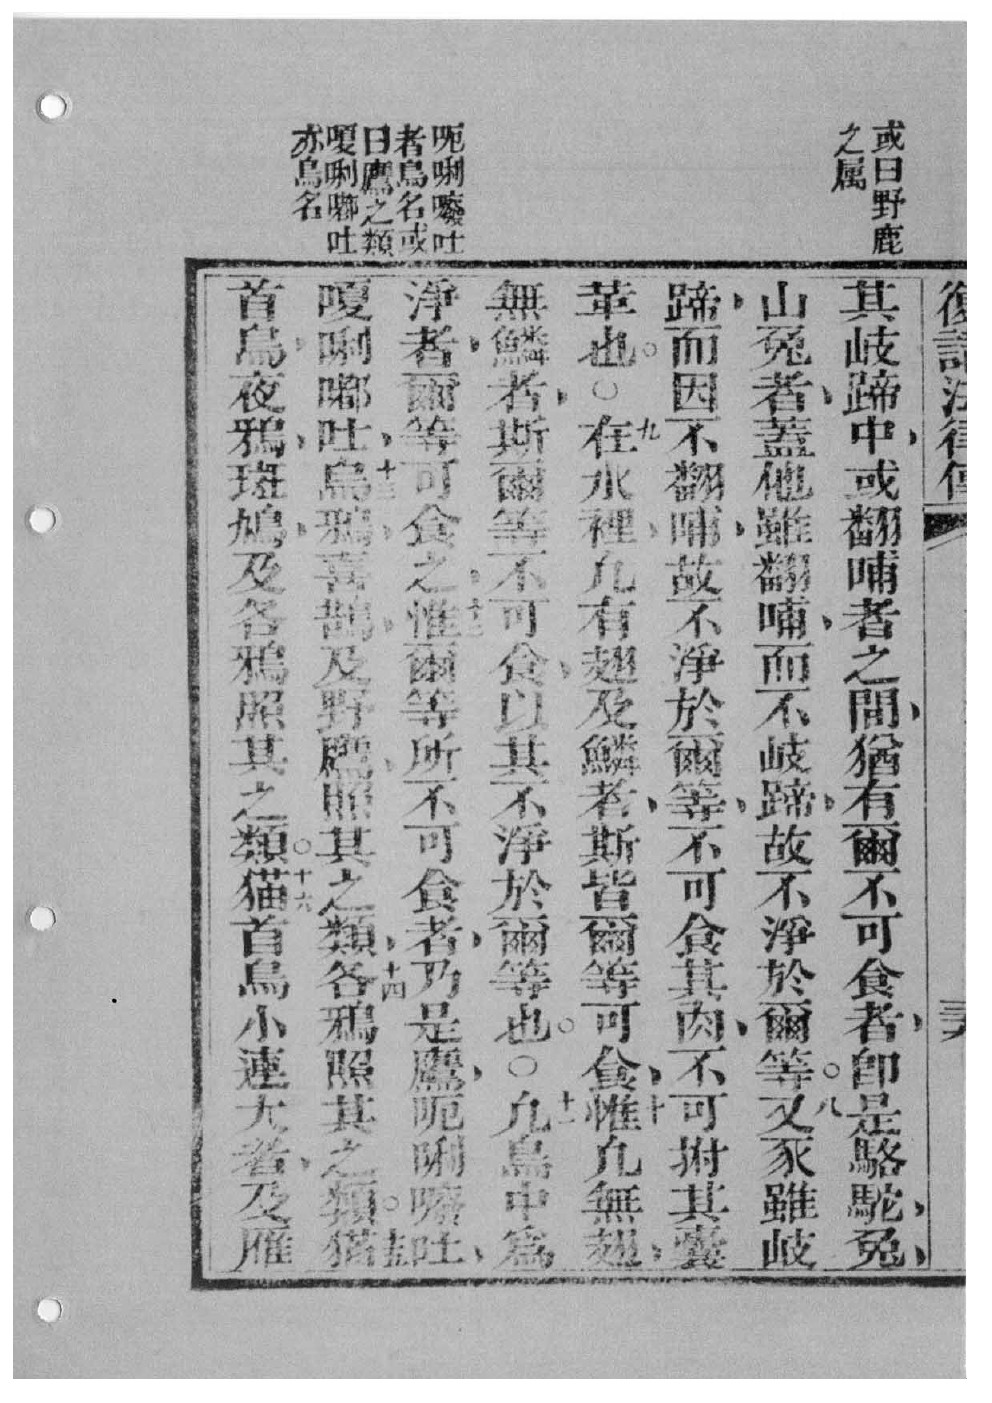 或曰野鹿
之属
呃唎嚟吐
者鳥名或
曰鷹之類
嗄唎嘟吐
亦鳥名
復講法律傳
其岐蹄中或翻哺者之間猶有爾不可食者卽是駱駝兔
山兔者蓋他雖翻哺而不岐蹄故不淨於爾等○八又豕雖岐
蹄而因不翻哺故不淨於爾等不可食其肉不可拊其囊
革也○九在水裡凢有翅及鱗者斯皆爾等可食十惟凢無翅
無鱗者斯爾等不可食以其不淨於爾等也○十一凢鳥中為
淨者爾等可食之十二惟爾等所不可食者乃是鷹呃唎嚟吐
嗄唎嘟吐十三烏鴉喜鵲及野鷹照其之類十四各鴉照其之類○十五猫
首鳥夜鴉斑鳩及各鴉照其之類○十六猫首鳥小連大者及雁